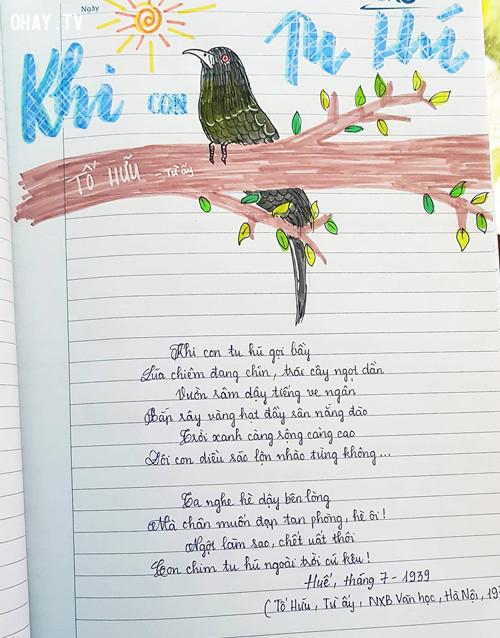 OHAY.TV
Ngày
Khi con Tu Hú
TỐ HỮU - Từ ấy
Khi con tu hú gọi bầy
Lúa chiêm đang chín, trái cây ngọt dần
Vườn râm dậy tiếng ve ngân
Bắp rây vàng hạt đầy sân nắng đào
Trời xanh càng rộng càng cao
Đôi con diều sáo lộn nhào từng không...
Ta nghe hè dậy bên lòng
Mà chân muốn đạp tan phòng, hè ôi!
Ngột làm sao, chết uất thôi
Con chim tu hú ngoài trời cứ kêu!
Huế, tháng 7 - 1939
(Tố Hữu, Từ ấy, NXB Văn học, Hà Nội,